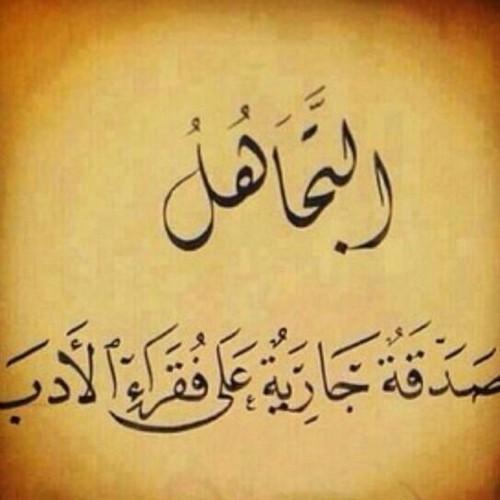 التَّجَاهُلُ
صَدَقَةٌ جَارِيَةٌ عَلَى فُقَرَاءِ الأَدَبَ